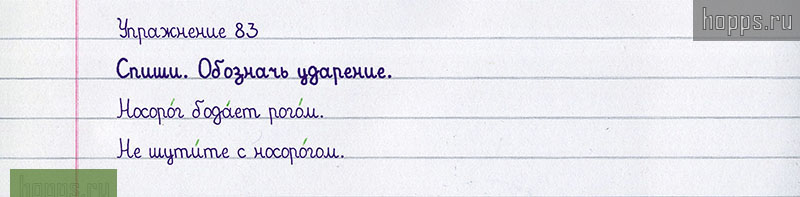 hopps.ru
Упражнение 83
Спиши. Обозначь ударение.
Носоро́г бода́ет рого́м.
Не шути́те с носоро́гом.
hopps.ru